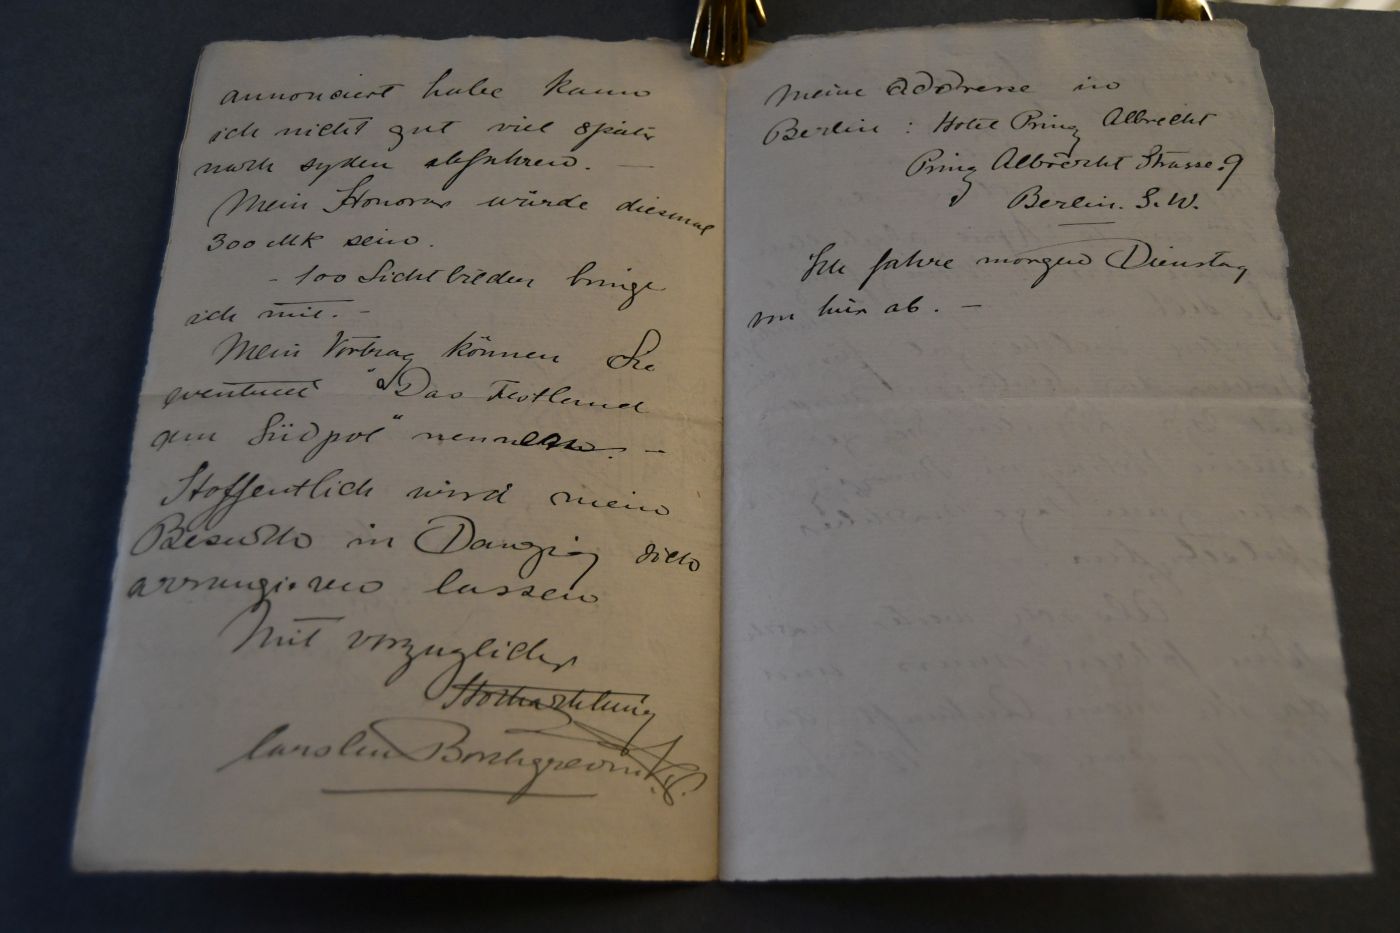 annonciert habe kann
ich nicht gut viel später
nach syden abfahren. —
Mein Honorar würde diesmal
300 Mk sein.
- 100 Lichtbilder bringe
ich mit. -
Mein Vortrag können Sie
eventuell "Das Festland
am Südpol" nennen. —
Hoffentlich wird mein
Besuch in Danzig sich
arrangieren lassen
Mit vorzuglicher
Hochachtung
Carsten Borchgrevink
Meine Addresse in
Berlin : Hotel Prinz Albrecht
Prinz Albrecht Strasse. 9
Berlin. S. W.
Ich fahre morgen Dienstag
von hier ab. —